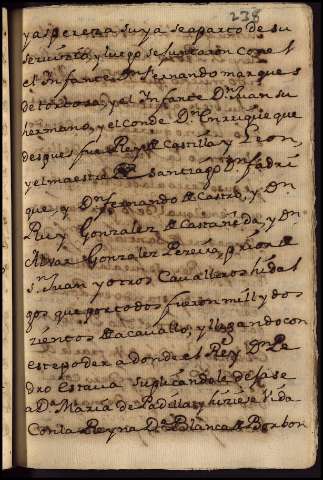 238
y aspereza suya se aparto de su
servicio, y luego se juntaron con el
el Infante Dn fernando marques
de tortosa, y el Infante Dn Juan su
hermano, y el conde Dn Enrrique que
despues fue Rey de Castilla y Leon,
y el maestre de Santiago Dn fadri
que, y Dn fernando de Castro, y Dn
Ruy Gonzalez de Castañeda, y Dn
Alvar Gonzalez Pereira, prior de
Sn Juan y otros Cavalleros hidal
gos que por todos fueron mill y dos
zientos de acavallo, y llegando con
este poder a donde el Rey Dn Pe
dro Estava suplicandole dejase
a Da Maria de Padilla y hiziese Vida
Con la Reyna Da Blanca de Borbon